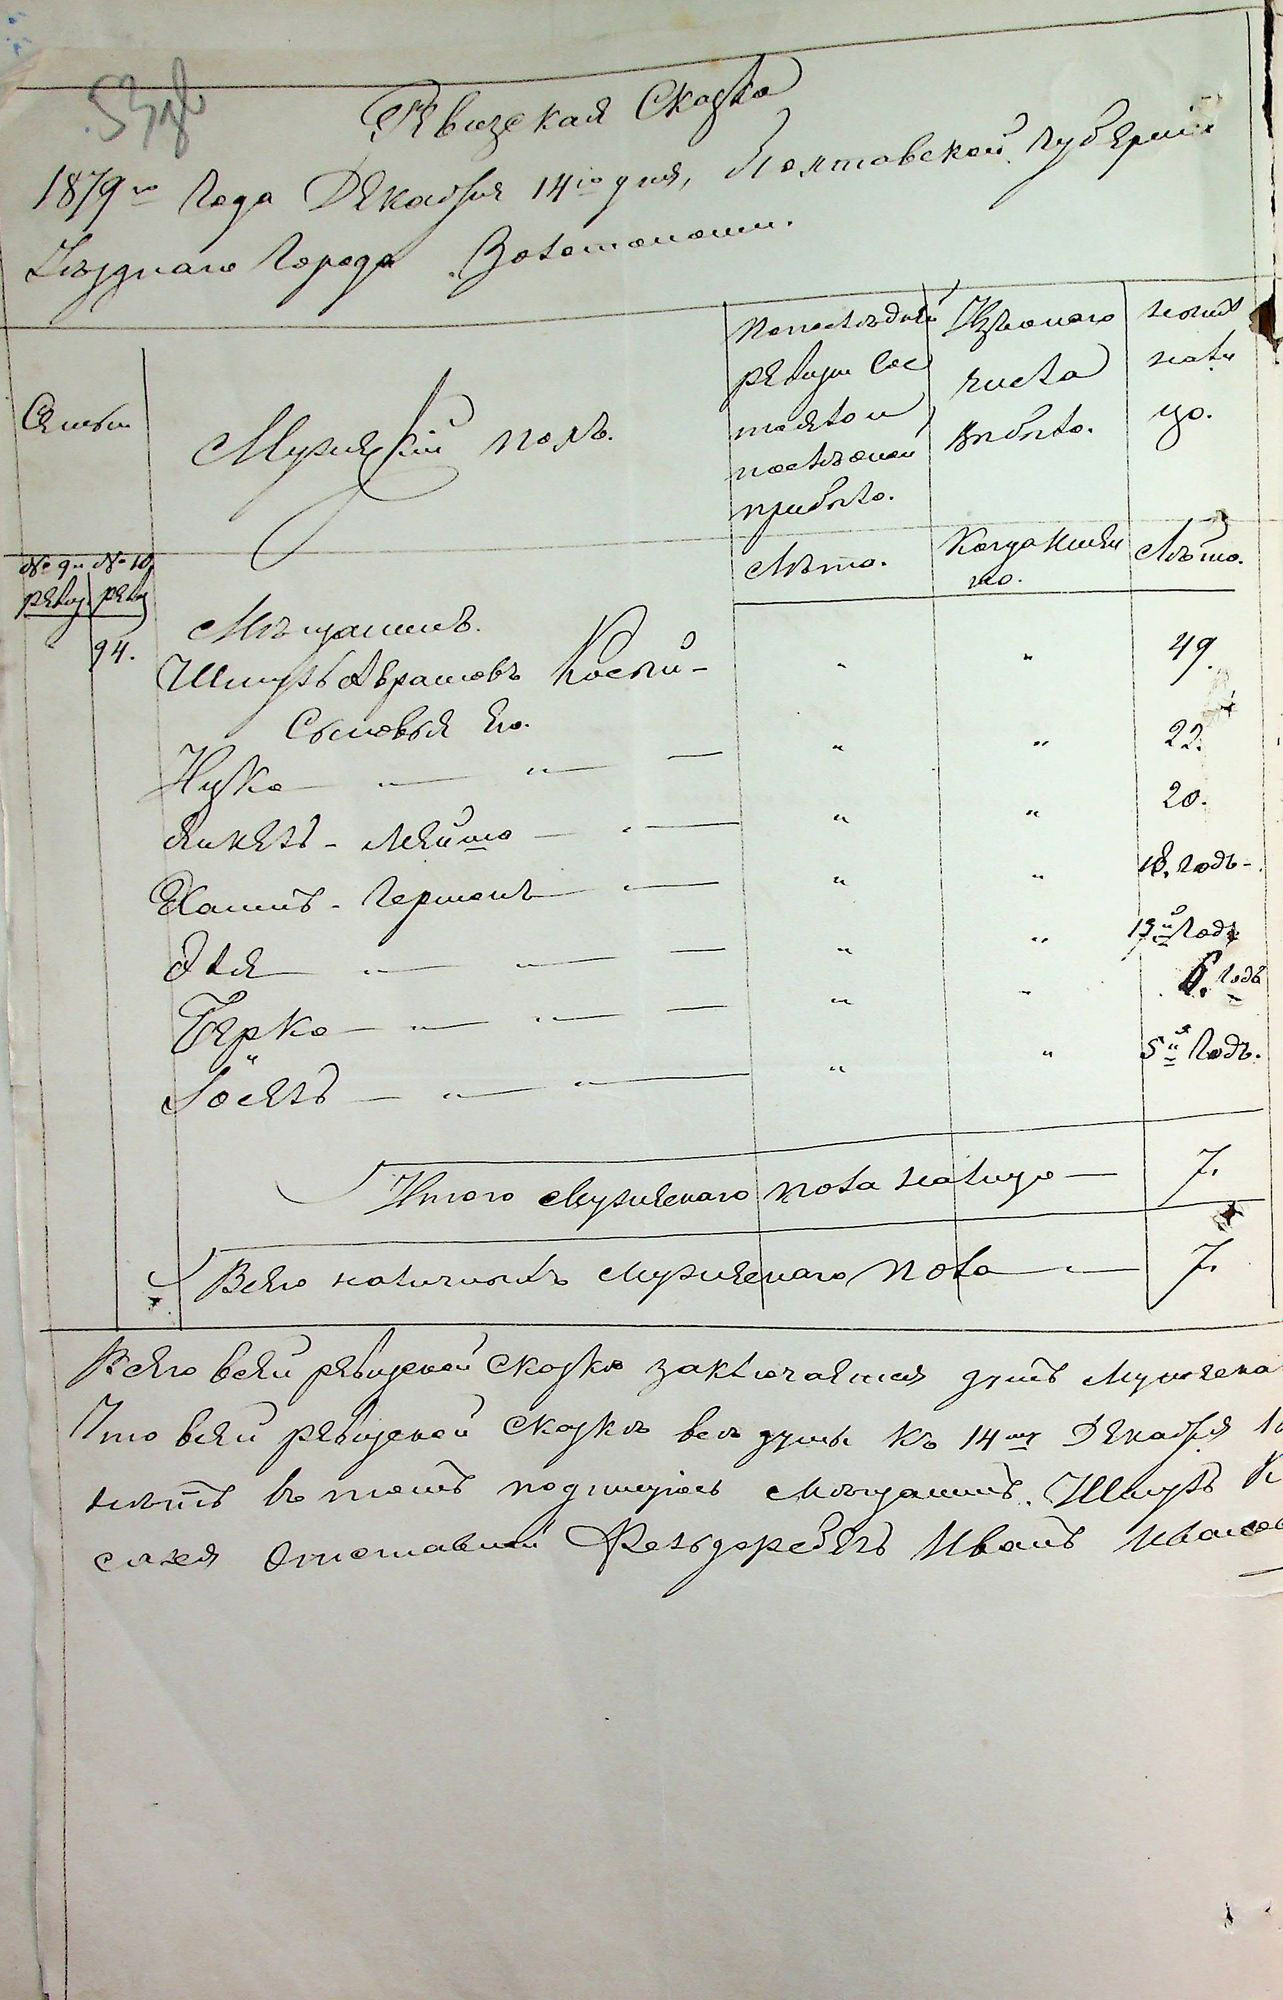 Ревизская Сказка
1879го Года Декабря 14го дня, Полтавской губернии
Уезднаго Города Золотоноши.
Семьи
Мужескій полъ.
По последней
ревизіи сос
тояло и
после оной
прибыло.
Изъ онаго
числа
выбыло.
ныне
нали
цо.
№ 9й ревиз. № 10 ревиз
Лѣта.
Когда имен
но.
Лѣта.
Мѣщанинъ.
94. Шмуль Абрамовъ Косый - " " 49.
Сыновья его.
Нухко — " — " — " " 22.
Янкель - Лейта — " — " " 20.
Хаимъ - Германъ — " — " " 18. годъ -
Эля — " — " — " " 13й Годъ
Берко — " — " — " " 6. годъ
Іосель — " — " — " " 5й Годъ.
Итого мужескаго пола налицо — 7.
Всего наличныхъ мужескаго пола — " — 7.
Всего в сей ревизской сказке заключается душъ мужеска
Что в сей ревизской сказкѣ все души къ 14му Декабря
въ томъ подпишуюсь мѣщанинъ. Шмуль К
отставной Фельдфебель Иванъ Иванов